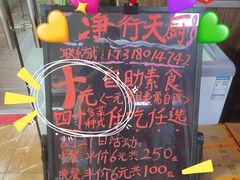 净行天厨
联系就:17318014742
十元自助素食
(一元
四十多种任吃任选
日活动
中餐半价6元共250位
晚餐半价6元共100位